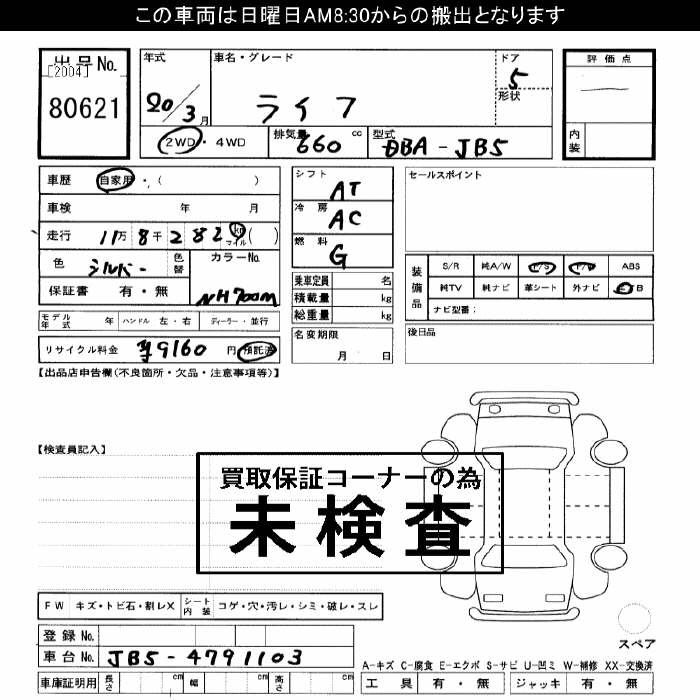 この車両は日曜日AM8:30からの搬出となります
出品No.
[2004]
80621
年式
20/3月
車名・グレード
ライフ
ドア
5
形状
評価点
内装
2WD・4WD
排気量
660cc
型式
DBA-JB5
車歴 自家用・( )
車検 年 月
走行 11万8千282km マイル( )
色 シルバー 色替
カラーNo.
NH700M
保証書 有・無
シフト
AT
冷房
AC
燃料
G
乗車定員 名
積載量 kg
総重量 kg
セールスポイント
装備品
S/R 純A/W P/S P/W ABS
純TV 純ナビ 革シート 外ナビ エアB
ナビ型番:
モデル年式 年 ハンドル 左・右 ディーラー・並行
リサイクル料金 ¥9160 円 預託済
名変期限
月 日
後日品
【出品店申告欄(不良箇所・欠品・注意事項等)】
【検査員記入】
買取保証コーナーの為
未検査
FW キズ・トビ石・割レX シート内装 コゲ・穴・汚レ・シミ・破レ・スレ
登録No.
車台No. JB5-4791103
車庫証明用 長さ cm 幅 cm 高さ cm
スペア
A-キズ C-腐食 E-エクボ S-サビ U-凹ミ W-補修 XX-交換済
工具 有・無 ジャッキ 有・無